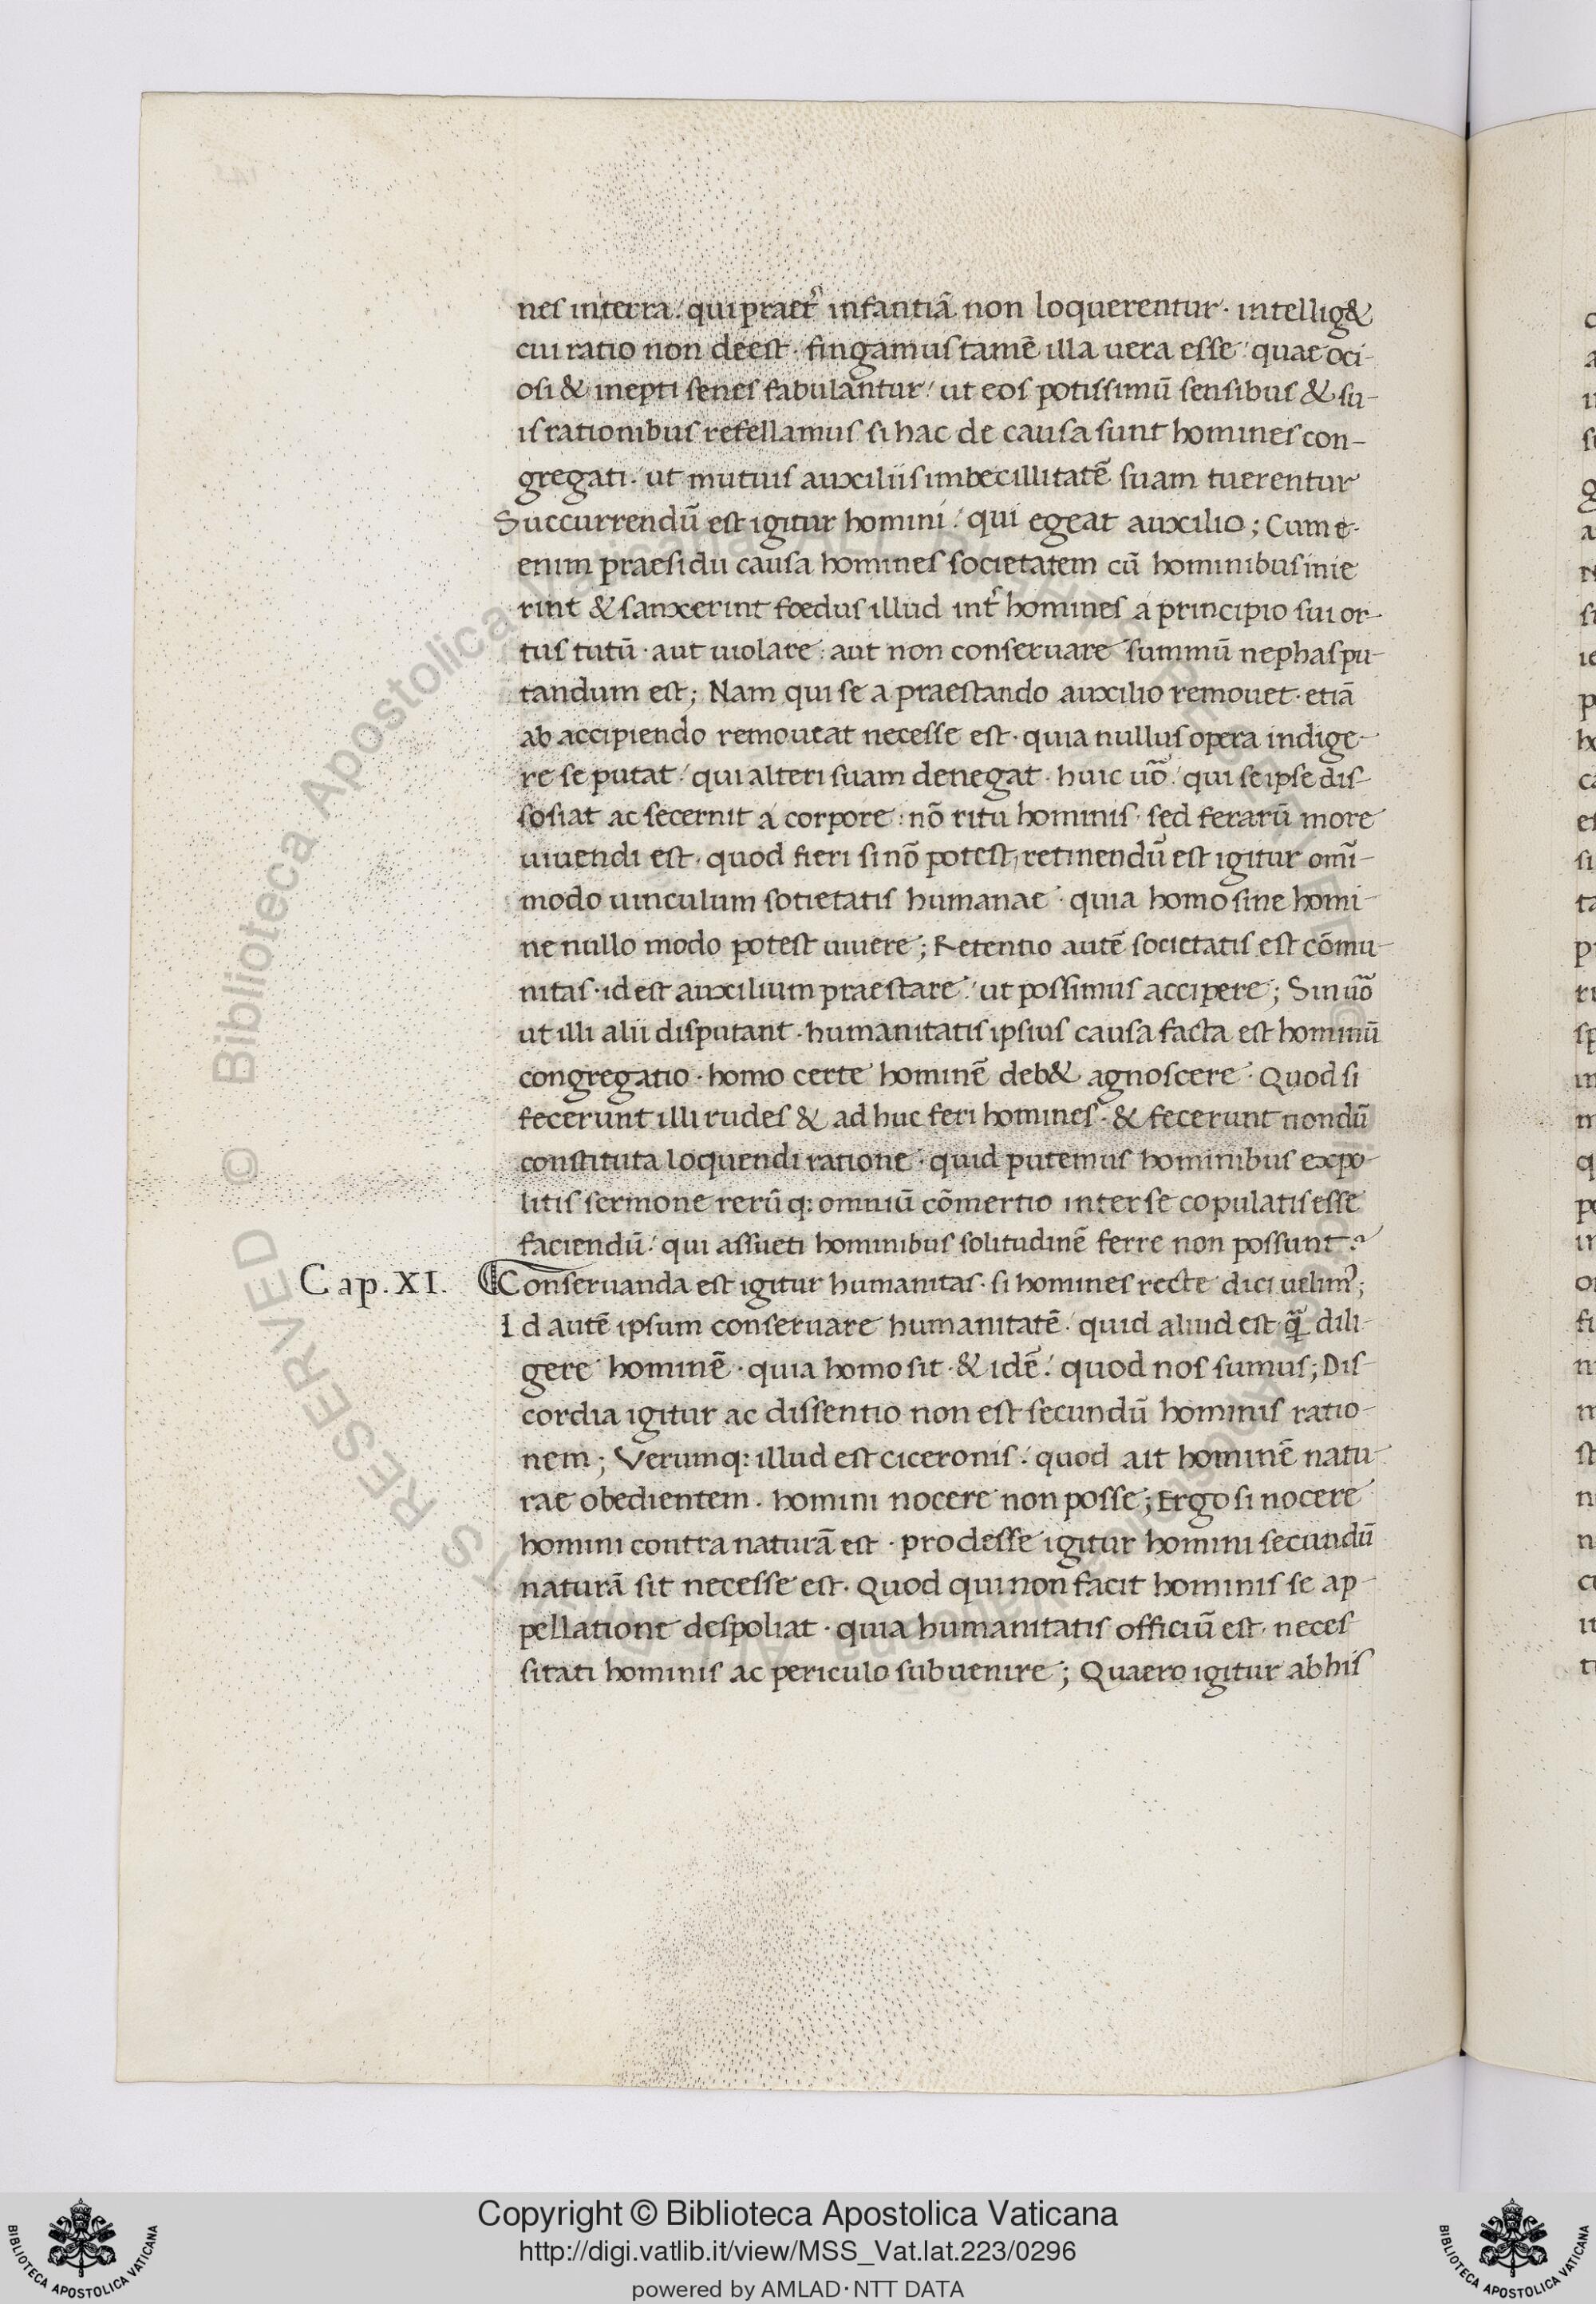 nes in terra: qui praet̃ infantiã non loquerentur· intellig&
cui ratio non deest· fingamus tamẽ illa uera esse: quae oci-
osi & inepti senes fabulantur: ut eos potissimũ sensibus & su-
is rationibus refellamus si hac de causa sunt homines con-
gregati· ut mutuis auxiliis imbecillitatẽ suam tuerentur
Succurrendũ est igitur homini: qui egeat auxilio; Cum e-
enim praesidii causa homines societatem cũ hominibus inie
rint & sanxerint foedus illud int̃ homines a principio sui or-
tus tutũ· aut uiolare: aut non conseruare summũ nephas pu-
tandum est; Nam qui se a praestando auxilio remouet· etiã
ab accipiendo remoueat necesse est· quia nullus opera indige-
re se putat· qui alteri suam denegat· huic uõ: qui se ipse dis-
sosiat ac secernit a corpore: nõ ritu hominis· sed ferarũ more
uiuendi est· quod fieri si nõ potest, retinendũ est igitur omĩ-
modo uinculum sotietatis humanae· quia homo sine homi-
ne nullo modo potest uiuere; Retentio autẽ societatis est cõmu-
nitas· id est auxilium praestare: ut possimus accipere; Sin uõ
ut illi alii disputant· humanitatis ipsius causa facta est hominũ
congregatio· homo certe hominẽ deb& agnoscere· Quod si
fecerunt illi rudes & ad huc feri homines· & fecerunt nondũ
constituta loquendi ratione· quid putemus hominibus expo-
litis sermone rerũq: omniũ cõmertio inter se copulatis esse
faciendũ: qui assueti hominibus solitudinẽ ferre non possunt?
Cap. XI. Conseruanda est igitur humanitas· si homines recte dici uelim⁹;
Id autẽ ipsum conseruare humanitatẽ· quid aliud est q̃ dili-
gere hominẽ· quia homo sit· & idẽ: quod nos sumus; Dis-
cordia igitur ac dissentio non est secundũ hominis ratio-
nem; Verumq: illud est ciceronis: quod ait hominẽ natu-
rae obedientem· homini nocere non posse; Ergo si nocere
homini contra naturã est· prodesse igitur homini secundũ
naturã sit necesse est· Quod qui non facit hominis se ap-
pellatione despoliat· quia humanitatis officiũ est· neces
sitati hominis ac periculo subuenire; Quaero igitur ab his
Copyright © Biblioteca Apostolica Vaticana
http://digi.vatlib.it/view/MSS_Vat.lat.223/0296
powered by AMLAD·NTT DATA